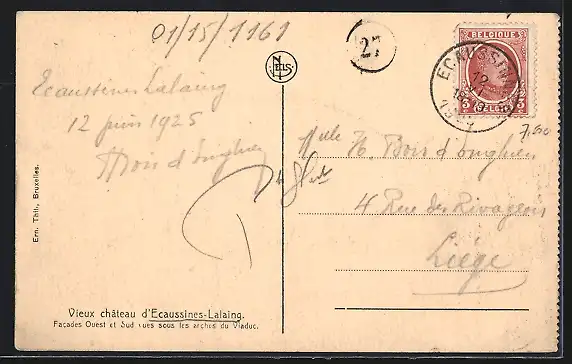 01/15/1161
27
NELS
ECAUSSIN
12
BELGIQUE
3 3
7,00
Ecaussines Lalaing
12 juin 1925
Bois d'Enghien
Mlle H. Bois d'Enghien
4 Rue des Rivageois
Liége
Ern. Thill, Bruxelles.
Vieux château d'Ecaussines-Lalaing.
Façades Ouest et Sud vues sous les arches du Viaduc.